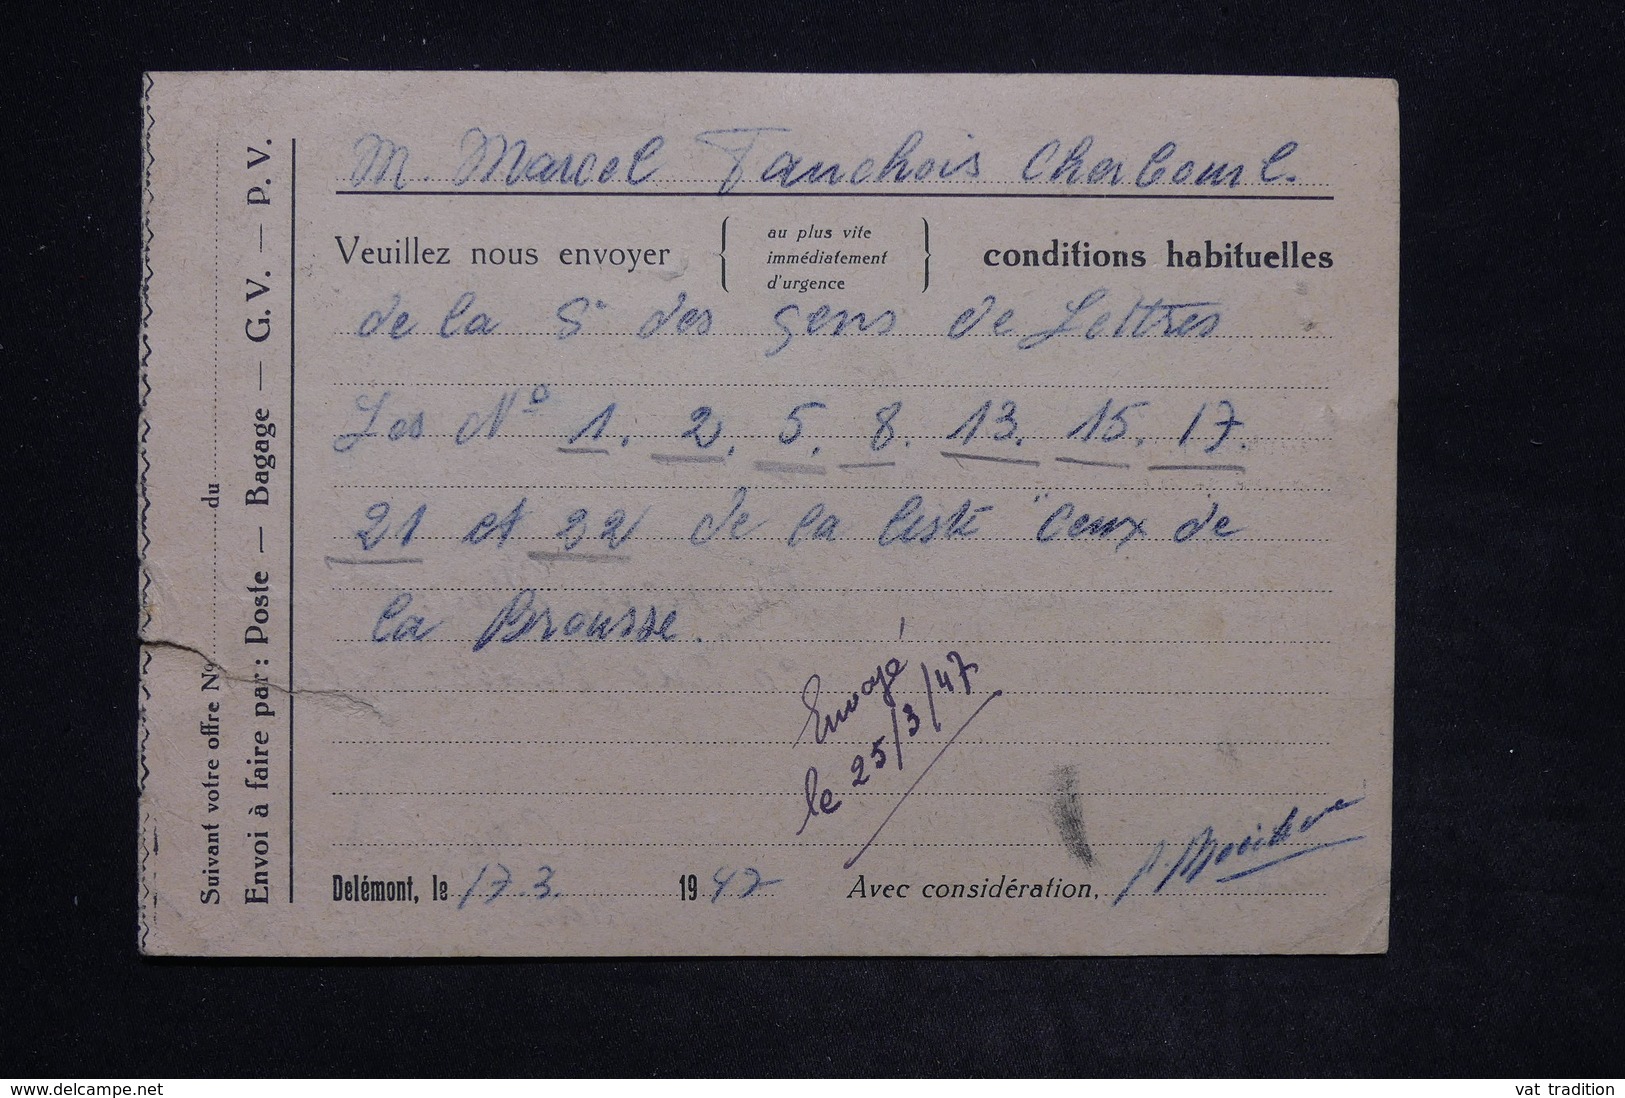 M. Marcel Fauchois Cherbourg.
Veuillez nous envoyer { au plus vite
immédiatement
d'urgence } conditions habituelles
de la Sté des gens de Lettres
Les No 1. 2. 5. 8. 13. 15. 17.
21 et 22 de la liste "Ceux de
la Brousse.
Envoyé
le 25/3/47
Delémont, le 17.3. 1947 Avec considération,
Suivant votre offre No du
Envoi à faire par: Poste — Bagage — G. V. — P. V.
www.delcampe.net
vat tradition